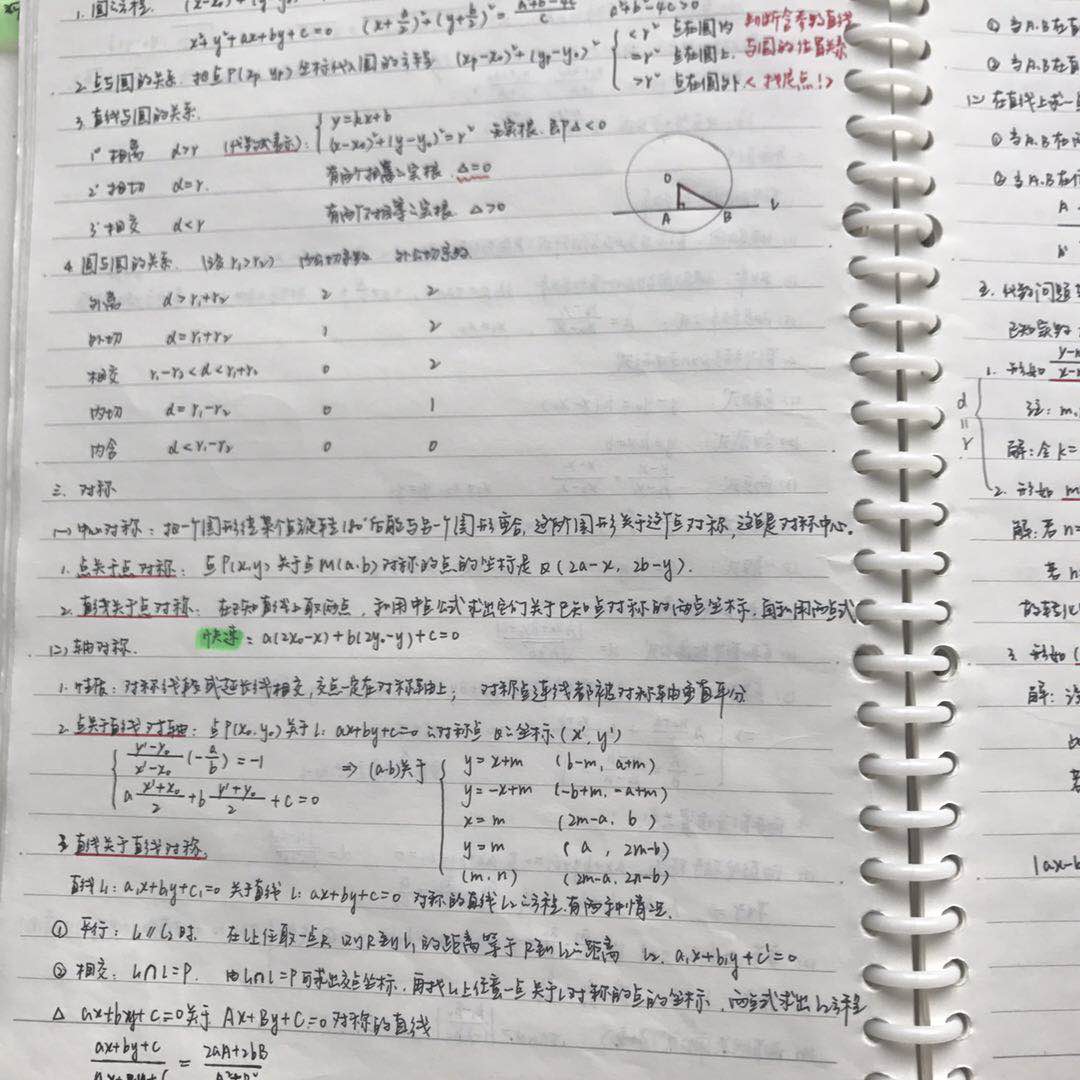 1. 圆之方程.
x²+y²+ax+by+c=0 (x+a/2)²+(y+b/2)²= a²+b²-4c>0
2. 点与圆的关系. 把点P(xp, yp)坐标代入圆的方程 (xp-x₀)²+(yp-y₀)²
<r² 点在圆内
=r² 点在圆上.
>r² 点在圆外
判断含参数直线
与圆的位置关系
<找定点!>
3. 直线与圆的关系.
1° 相离 d>r (代数式表示): { y=kx+b
(x-x₀)²+(y-y₀)²=r² 无实根. 即Δ<0
2° 相切 d=r. 有两个相等之实根. Δ=0
3° 相交 d<r 有两个不相等之实根. Δ>0
O
A B l
4. 圆与圆的关系. (设r₁>r₂) 内公切条数 外公切条数
外离 d>r₁+r₂ 2 2
外切 d=r₁+r₂ 1 2
相交 r₁-r₂<d<r₁+r₂ 0 2
内切 d=r₁-r₂ 0 1
内含 d<r₁-r₂ 0 0
三. 对称
(一)中心对称: 把一个图形绕某个点旋转180°后能与另一个图形重合, 这两个图形关于这个点对称, 这点是对称中心.
1. 点关于点对称: 点P(x,y)关于点M(a,b)对称的点的坐标是Q(2a-x, 2b-y).
2. 直线关于点对称: 在已知直线上取两点, 利用中点公式求出它们关于已知点对称的两点坐标, 再利用两点式
快速: a(2x₀-x)+b(2y₀-y)+c=0
(二) 轴对称.
1. 性质: 对称线段或延长线相交, 交点一定在对称轴上; 对称点连线都被对称轴垂直平分
2. 点关于直线对称: 点P(x₀,y₀)关于l: ax+by+c=0之对称点Q之坐标(x',y')
{ (y'-y₀)/(x'-x₀) (-a/b)=-1
a (x'+x₀)/2 + b (y'+y₀)/2 + c=0
⇒ (a·b)关于
y=x+m (b-m, a+m)
y=-x+m (-b+m, -a+m)
x=m (2m-a, b)
y=m (a, 2m-b)
(m, n) (2m-a, 2n-b)
3. 直线关于直线对称.
直线l₁: a₁x+b₁y+c₁=0 关于直线 l: ax+by+c=0 对称的直线l₂之方程. 有两种情况.
① 平行: l₁∥l₂时. 在l上任取一点R, 则R到l₁的距离等于R到l₂之距离 l₂. a₁x+b₁y+c'=0
② 相交: l₁∩l=P. 由l₁∩l=P可求出交点坐标, 再找l₁上任意一点关于l对称的点的坐标, 两点式求出l₂方程
Δ ax+by+c=0关于 Ax+By+C=0对称的直线
(ax+by+c)/(Ax+By+C) = (2aA+2bB)/(A²+B²)
① 当A.B在直
② 当A.B在直
(二) 在直线上求一
① 当A.B在
② 当A.B在
A
五. 代数问题
已知实数
1. 形如 y-n/x-m
d=r
注: m,
解: 令k=
2. 形如 m
解: 若n=
若n
3. 形如(
解: 设
|ax-b